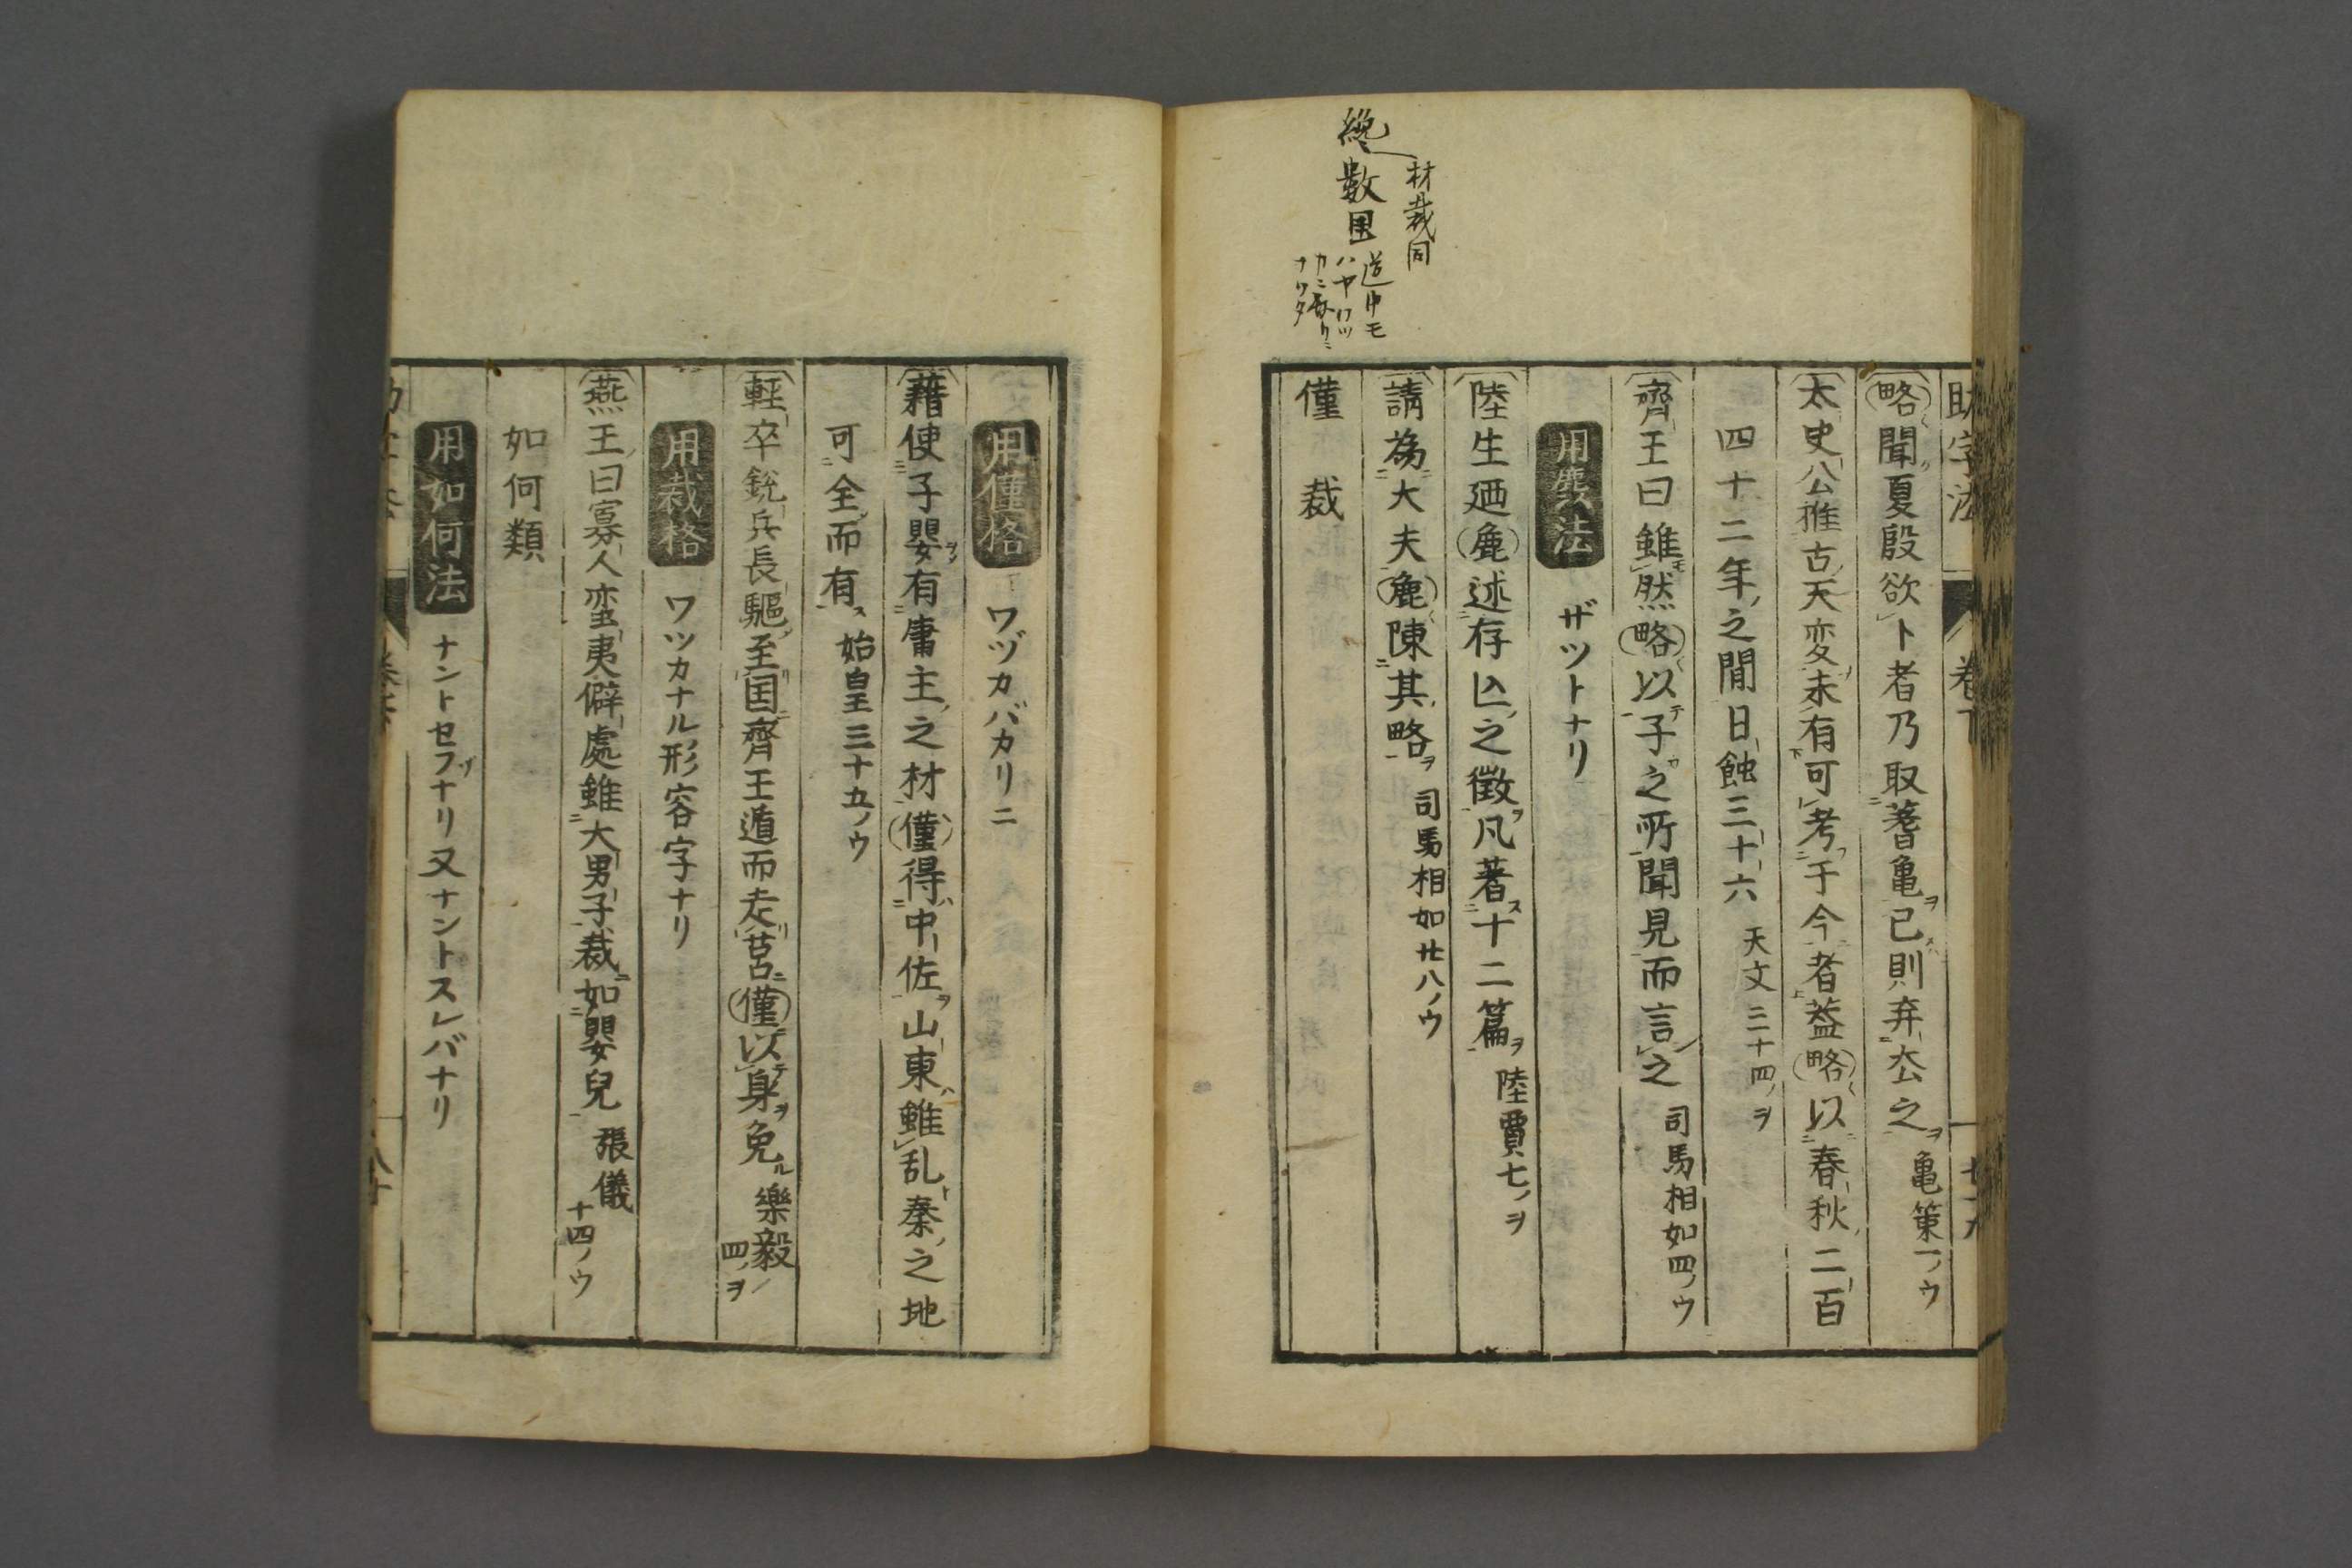 助字法 卷下
略聞夏殷欲卜者乃取蓍亀已則弃厺之 亀策一ノウ
太史公推古天変未有可考于今者蓋略以春秋二百
四十二年之間日蝕三十六 天文三十四ノヲ
齊王曰雖然略以子之所聞見而言之 司馬相如四ノウ
用麁法 ザツトナリ
陸生廼麁述存亾之徴凡著十二篇 陸賈七ノヲ
請為大夫麁陳其略 司馬相如廿八ノウ
僅 裁
材裁同
纔 數国
用僅格 ワヅカバカリニ
藉使子嬰有庸主之材僅得中佐山東雖乱秦之地
可全而有 始皇三十五ノウ
軽卒鋭兵長驅至国齊王遁而走莒僅以身免 樂毅四ノヲ
用裁格 ワツカナル形容字ナリ
燕王曰寡人蛮夷僻處雖大男子裁如嬰兒 張儀十四ノウ
如何類
用如何法 ナントセフゾナリ又ナントスレバナリ